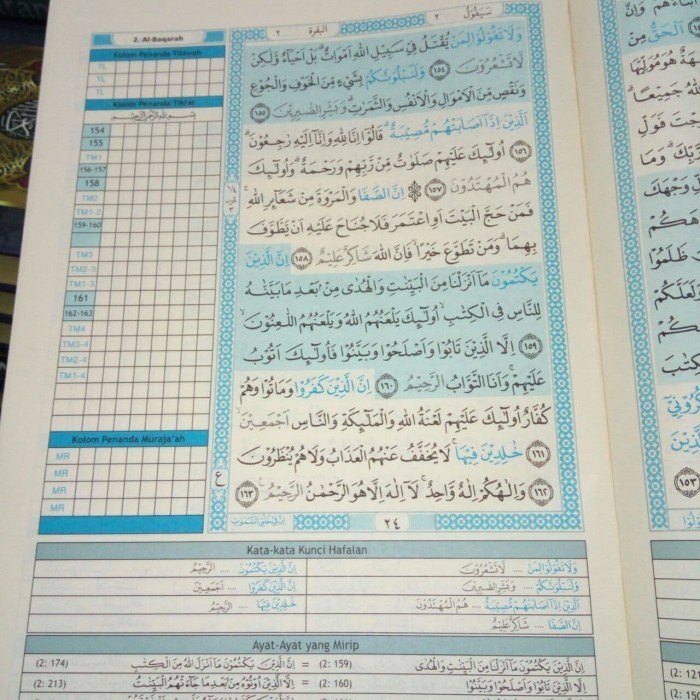 سيقول ٢
البقرة ٢
2. Al-Baqarah
Kolom Penanda Tilawah
TL
TL
TL
Kolom Penanda Tikrar
154
155
TM1
156-157
158
TM2
TM1-2
159-160
TM3
TM2-3
TM1-3
161
162-163
TM4
TM3-4
TM2-4
TM1-4
Kolom Penanda Muraja'ah
MR
MR
MR
MR
وَلَا تَقُولُوا لِمَنْ يُقْتَلُ فِيْ سَبِيْلِ اللّٰهِ اَمْوَاتٌ ۗ بَلْ اَحْيَاءٌ وَّلٰكِنْ
لَّا تَشْعُرُوْنَ ١٥٤ وَلَنَبْلُوَنَّكُمْ بِشَيْءٍ مِّنَ الْخَوْفِ وَالْجُوْعِ
وَنَقْصٍ مِّنَ الْاَمْوَالِ وَالْاَنْفُسِ وَالثَّمَرٰتِ ۗ وَبَشِّرِ الصّٰبِرِيْنَ ١٥٥
الَّذِيْنَ اِذَا اَصَابَتْهُمْ مُّصِيْبَةٌ ۙ قَالُوْا اِنَّا لِلّٰهِ وَاِنَّا اِلَيْهِ رٰجِعُوْنَ ۗ
١٥٦ اُولٰۤىِٕكَ عَلَيْهِمْ صَلَوٰتٌ مِّنْ رَّبِّهِمْ وَرَحْمَةٌ ۗ وَاُولٰۤىِٕكَ
هُمُ الْمُهْتَدُوْنَ ١٥٧ ۞ اِنَّ الصَّفَا وَالْمَرْوَةَ مِنْ شَعَاۤىِٕرِ اللّٰهِ ۚ
فَمَنْ حَجَّ الْبَيْتَ اَوِ اعْتَمَرَ فَلَا جُنَاحَ عَلَيْهِ اَنْ يَّطَّوَّفَ
بِهِمَا ۗ وَمَنْ تَطَوَّعَ خَيْرًا ۙ فَاِنَّ اللّٰهَ شَاكِرٌ عَلِيْمٌ ١٥٨ اِنَّ الَّذِيْنَ
يَكْتُمُوْنَ مَا اَنْزَلْنَا مِنَ الْبَيِّنٰتِ وَالْهُدٰى مِنْ بَعْدِ مَا بَيَّنّٰهُ
لِلنَّاسِ فِى الْكِتٰبِ ۙ اُولٰۤىِٕكَ يَلْعَنُهُمُ اللّٰهُ وَيَلْعَنُهُمُ اللّٰعِنُوْنَ ۙ
١٥٩ اِلَّا الَّذِيْنَ تَابُوْا وَاَصْلَحُوْا وَبَيَّنُوْا فَاُولٰۤىِٕكَ اَتُوْبُ
عَلَيْهِمْ ۚ وَاَنَا التَّوَّابُ الرَّحِيْمُ ١٦٠ اِنَّ الَّذِيْنَ كَفَرُوْا وَمَاتُوْا وَهُمْ
كُفَّارٌ اُولٰۤىِٕكَ عَلَيْهِمْ لَعْنَةُ اللّٰهِ وَالْمَلٰۤىِٕكَةِ وَالنَّاسِ اَجْمَعِيْنَ ۙ
١٦١ خٰلِدِيْنَ فِيْهَا ۚ لَا يُخَفَّفُ عَنْهُمُ الْعَذَابُ وَلَا هُمْ يُنْظَرُوْنَ
١٦٢ وَاِلٰهُكُمْ اِلٰهٌ وَّاحِدٌ ۚ لَا اِلٰهَ اِلَّا هُوَ الرَّحْمٰنُ الرَّحِيْمُ ࣖ ١٦٣
٢٤
Kata-kata Kunci Hafalan
وَلَا تَقُولُوا لِمَنْ ... لَا تَشْعُرُوْنَ
اِنَّ الَّذِيْنَ يَكْتُمُوْنَ ... الرَّحِيْمُ
وَلَنَبْلُوَنَّكُمْ ... وَبَشِّرِ الصّٰبِرِيْنَ
اِنَّ الَّذِيْنَ كَفَرُوْا ... اَجْمَعِيْنَ
الَّذِيْنَ اِذَا اَصَابَتْهُمْ مُّصِيْبَةٌ ... هُمُ الْمُهْتَدُوْنَ
خٰلِدِيْنَ فِيْهَا ... الرَّحِيْمُ
اِنَّ الصَّفَا ... شَاكِرٌ عَلِيْمٌ
Ayat-Ayat yang Mirip
اِنَّ الَّذِيْنَ يَكْتُمُوْنَ مَا اَنْزَلْنَا مِنَ الْبَيِّنٰتِ وَالْهُدٰى (2: 159) = اِنَّ الَّذِيْنَ يَكْتُمُوْنَ مَا اَنْزَلَ اللّٰهُ مِنَ الْكِتٰبِ (2: 174)
اِلَّا الَّذِيْنَ تَابُوْا وَاَصْلَحُوْا وَبَيَّنُوْا (2: 160) = اِلَّا الَّذِيْنَ اُوْتُوْهُ مِنْ بَعْدِ مَا جَاۤءَتْهُمُ الْبَيِّنٰتُ (2: 213)